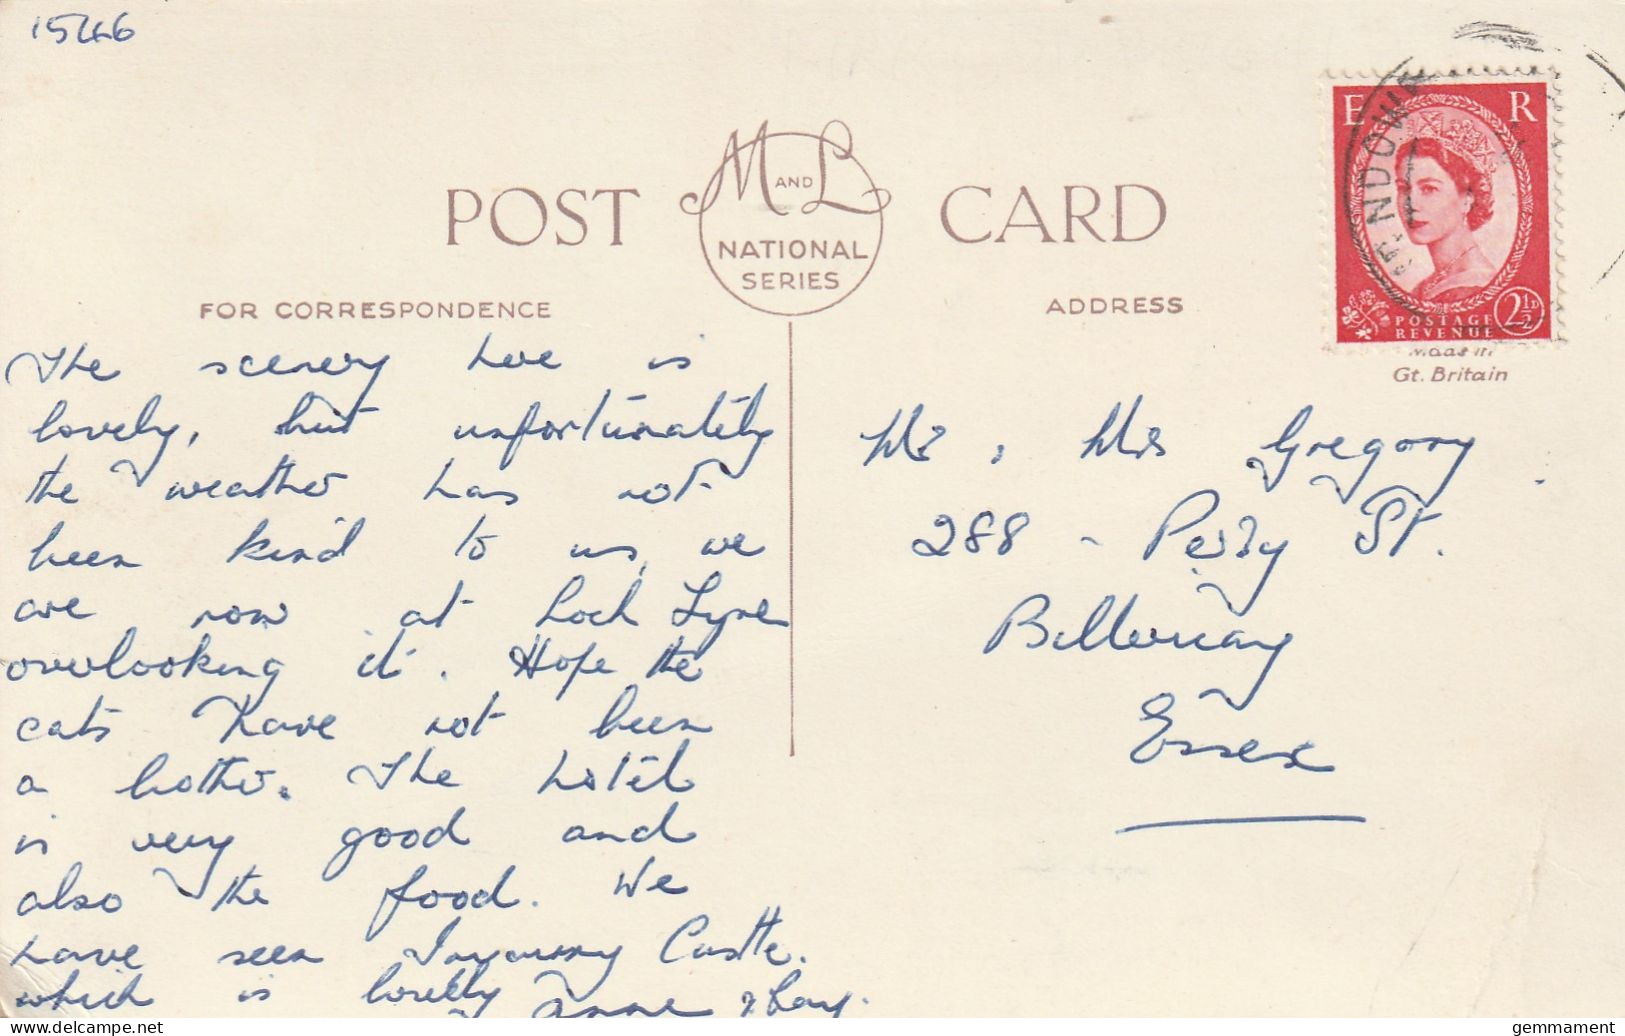 15446
M AND L
NATIONAL
SERIES
POST CARD
FOR CORRESPONDENCE
ADDRESS
E R
POSTAGE
REVENUE
2½D
Made in
Gt. Britain
The scenery here is
lovely, but unfortunately
the weather has not
been kind to us, we
are now at Loch Fyne
overlooking it. Hope the
cats have not been
a bother. The hotel
is very good and
also the food. We
have seen Castle.
which is lovely Anne & Ray.
Mr , Mrs Gregory
288 - Perry St.
Billericay
Essex
gemmament